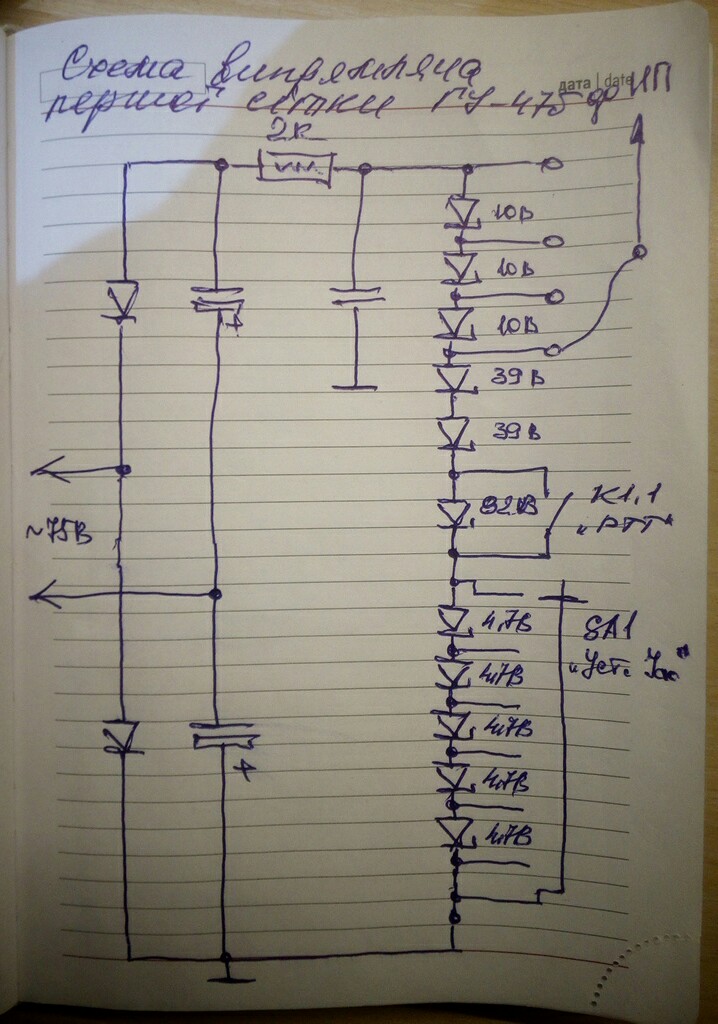 Схема випрямляча
дата | date
першої сітки ГУ-47Б до ИП
2к
10В
10В
10В
39В
39В
~75В
К1.1
„РТТ“
+
4,7В
SA1
4,7В
„Уст.
4,7В
+
4,7В
4,7В